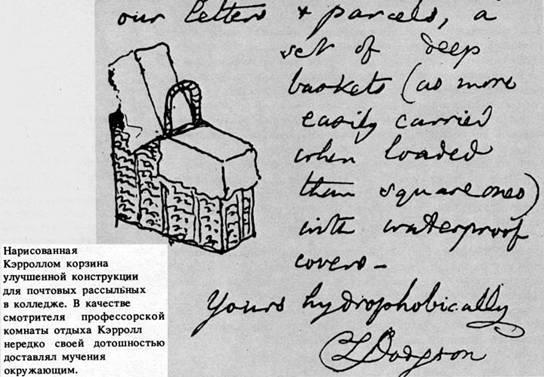 our letters & parcels, a
set of deep
baskets (as more
easily carried
when loaded
than square ones)
with waterproof
covers –
Yours hydrophobically
CL Dodgson
Нарисованная
Кэрроллом корзина
улучшенной конструкции
для почтовых рассыльных
в колледже. В качестве
смотрителя профессорской
комнаты отдыха Кэрролл
нередко своей дотошностью
доставлял мучения
окружающим.